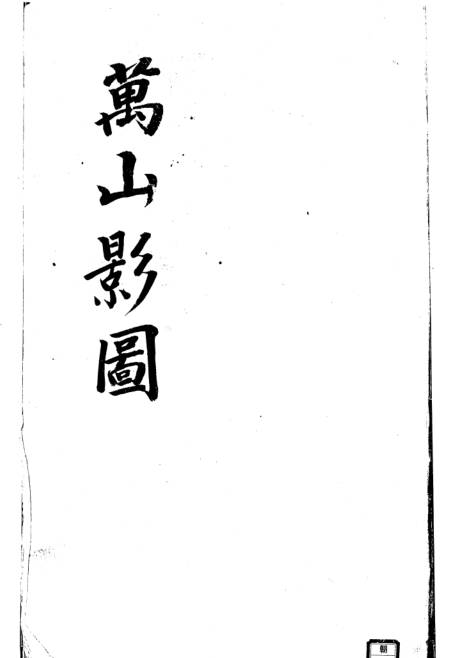 萬山影圖
朝